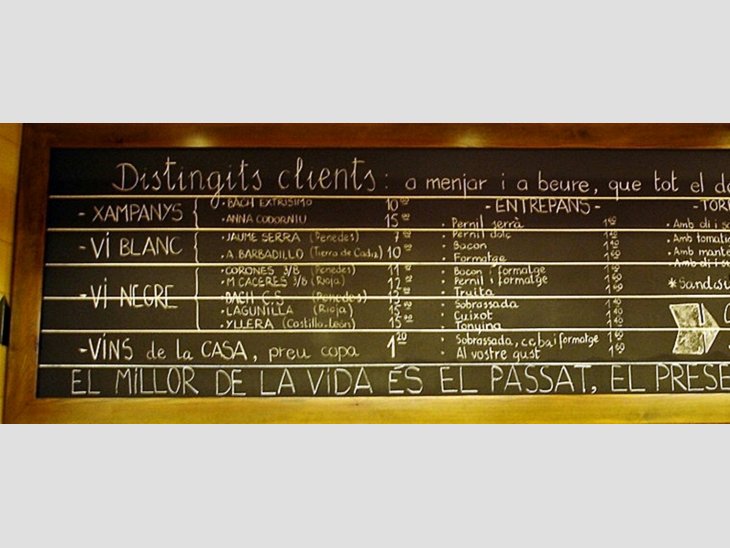 Distingits clients: a menjar i a beure, que tot el
- XAMPANYS
· BACH EXTRISIMO 10
· ANNA CODORNIU 15
- Vi BLANC
· JAUME SERRA (Penedes) 7
· A. BARBADILLO (Tierra de Cadiz) 10
- Vi NEGRE
· CORONES 3/8 (Penedes) 11
· M CACERES 3/8 (Rioja) 12
· BACH C.S. (Penedes) 12
· LAGUNILLA (Rioja) 15
· YLLERA (Castilla-León) 15
- VÍNS de la CASA, preu copa 1 20
- ENTREPANS -
· Pernil serrà
· Pernil dolç
· Bacon
· Formatge
· Bacon i formatge
· Pernil i formatge
· Truita
· Sobrassada
· Cuixot
· Tonyina
· Sobrassada, c.c, ba, i formatge
· Al vostre gust
· Amb oli i
· Amb
· Amb
· Amb oli i
EL MILLOR DE LA VIDA ÉS EL PASSAT, EL